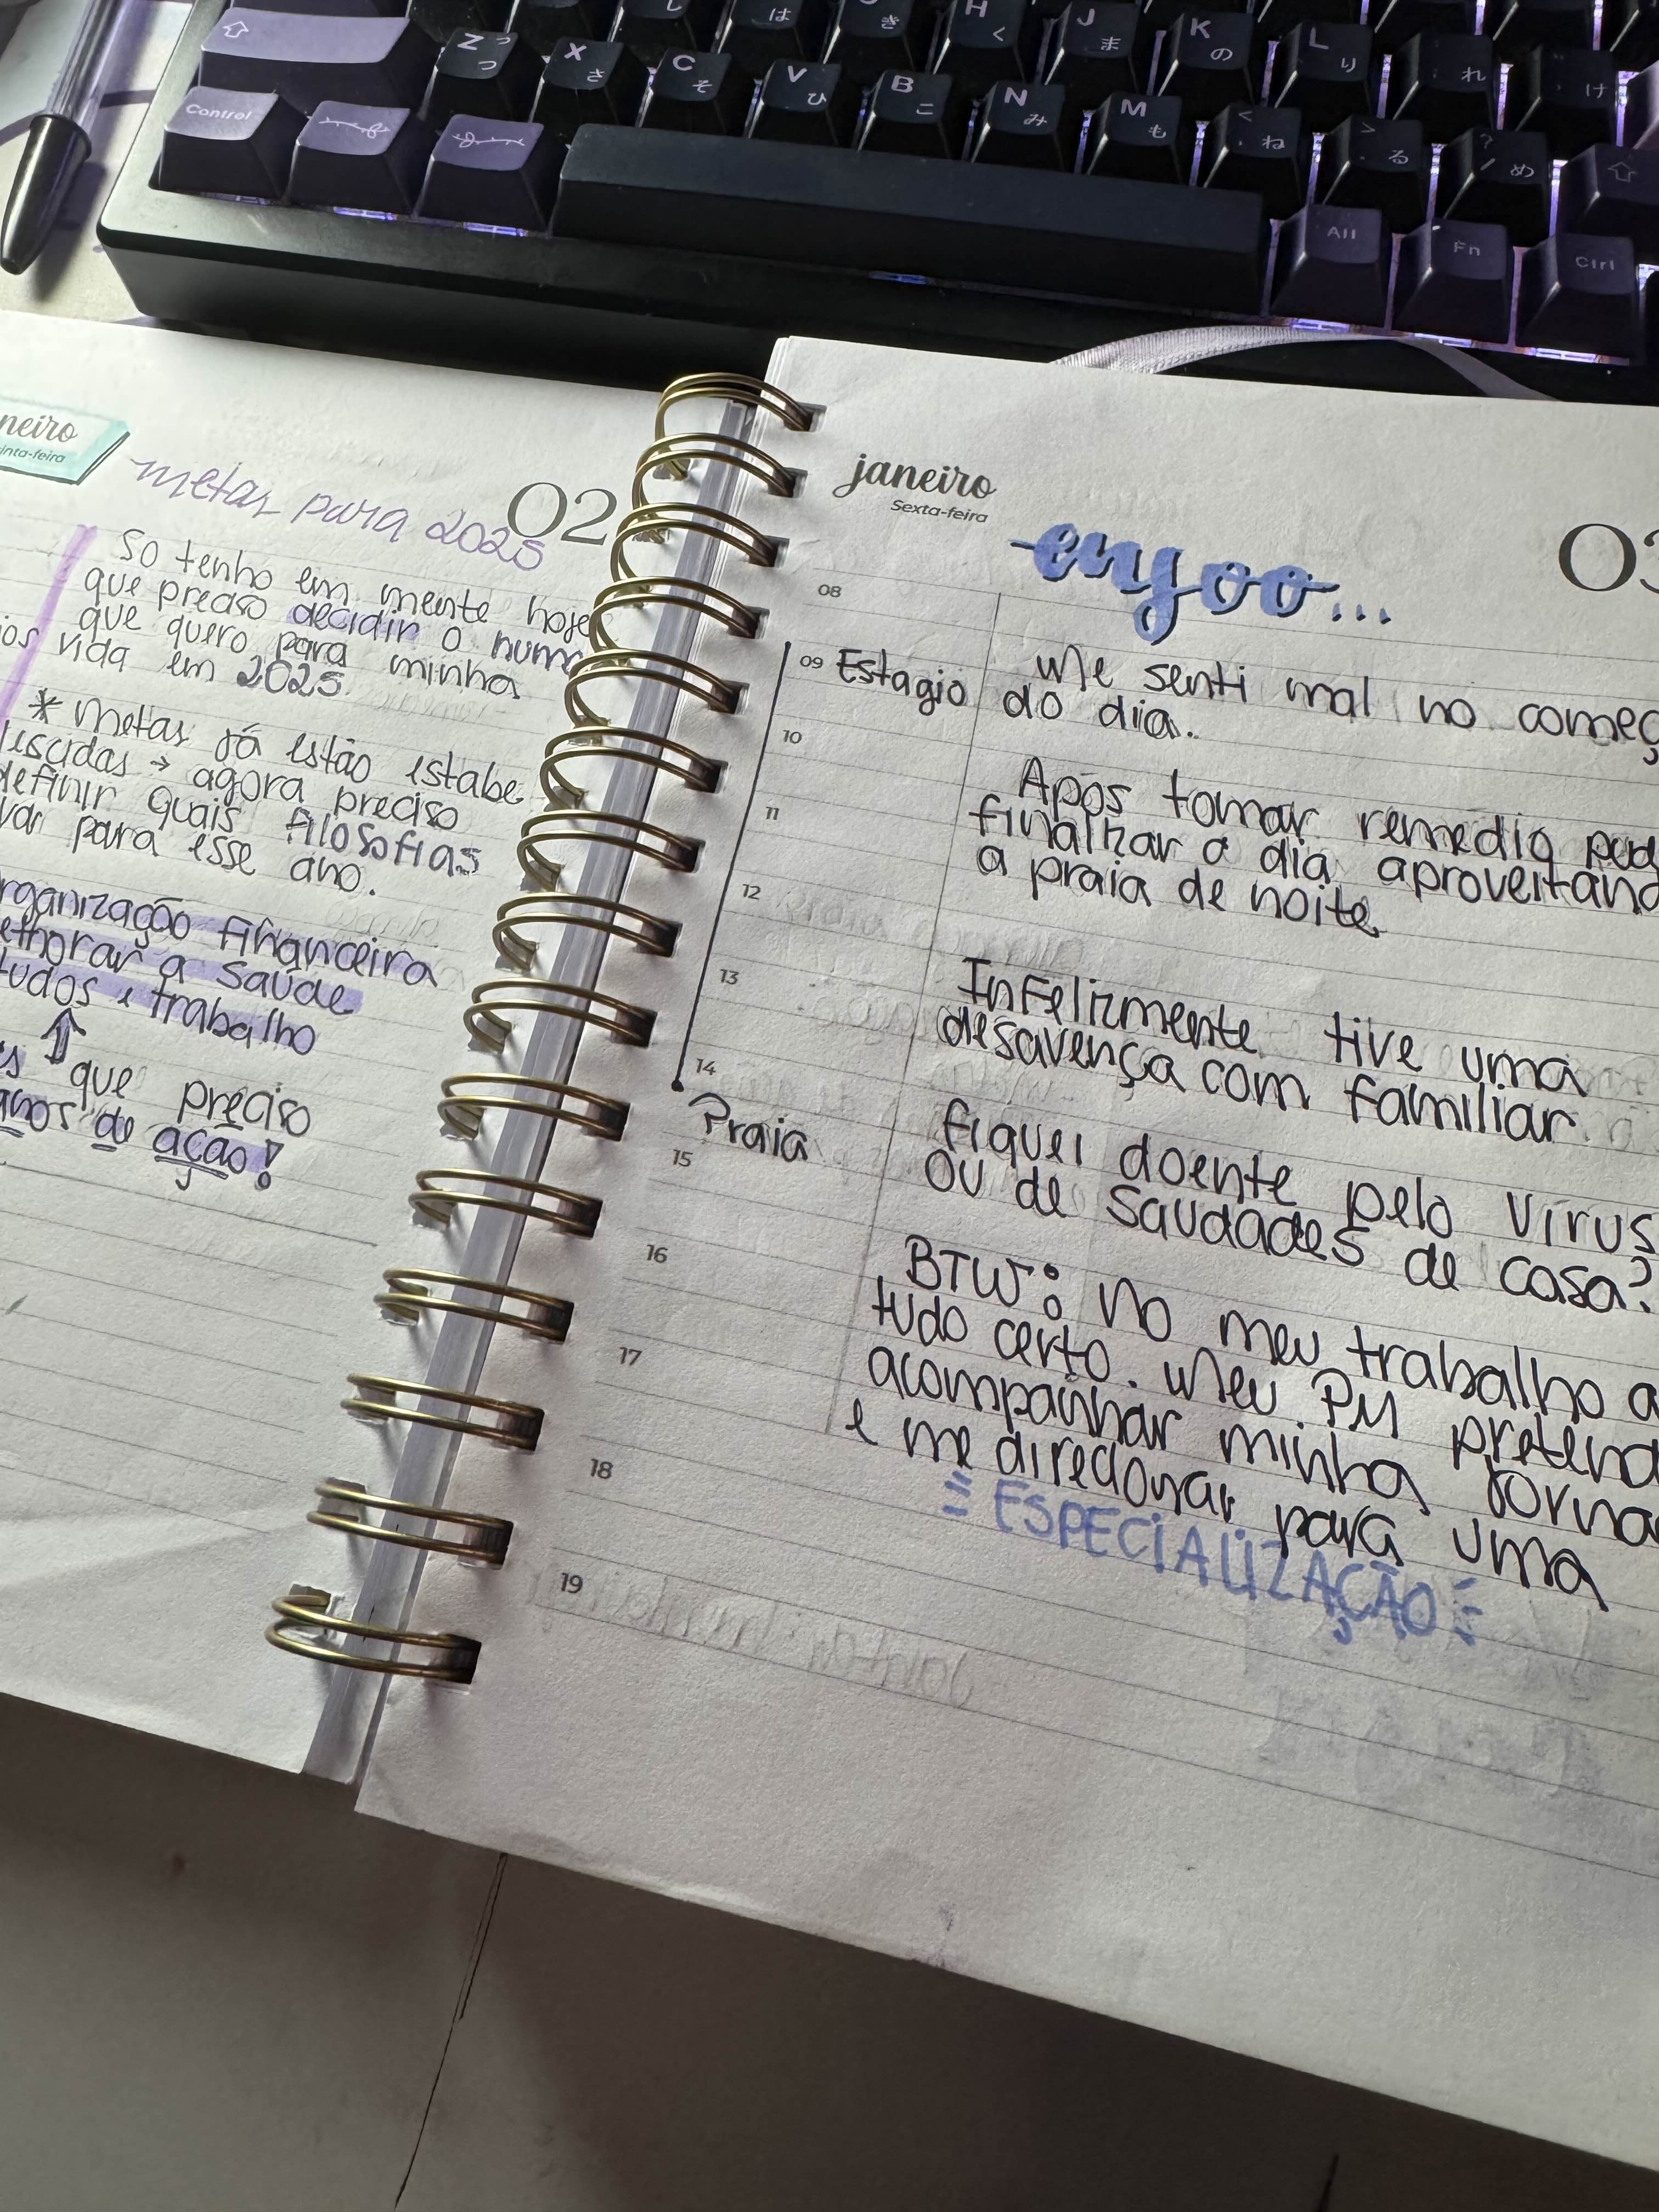 Z つ
X さ
C そ
V ひ
B こ
H く
N み
J ま
M も
K の
L り
れ
け
は
き
< ね
> る
? / め
Control
All
Fn
Ctrl
neiro
inta-feira
metas para 2025
02
So tenho em mente hoje
que preciso decidir o
que quero para minha
vida em 2025.
* Metas já estão estabe
lescidas → agora preciso
definir quais filosofias
var para esse ano.
rganização financeira
elhorar a saúde
tudos e trabalho
que preciso
de ação!
janeiro
Sexta-feira
03
enjoo...
08
09 Estagio
Me senti mal no começ
do dia.
10
Após tomar remedio pud
11
finalizar o dia aproveitand
a praia de noite
12
13
Infelizmente tive uma
desavença com familiar
14
Praia
Fiquei doente pelo vírus
15
ou de saudades de casa?
16
BTW: No meu trabalho a
tudo certo. Meu PM pretend
17
acompanhar minha jorna
e me direcionar para uma
18
ESPECIALIZAÇÃO
19